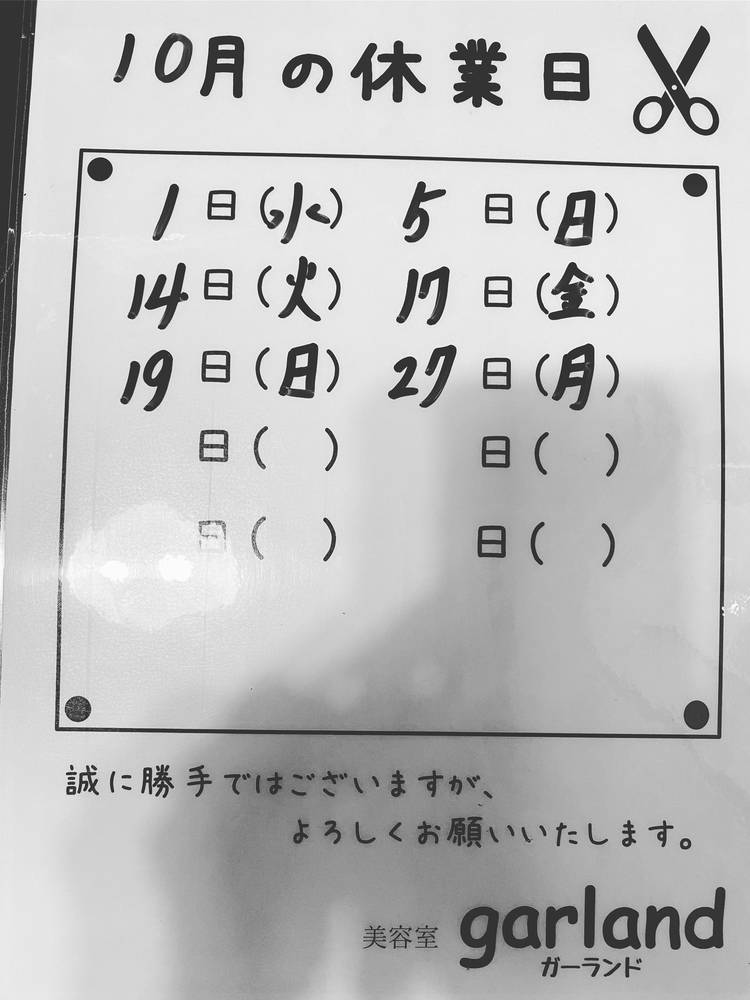 10月の休業日
1日(水) 5日(日)
14日(火) 17日(金)
19日(日) 27日(月)
日( ) 日( )
日( ) 日( )
誠に勝手ではございますが、
よろしくお願いいたします。
美容室 garland
ガーランド